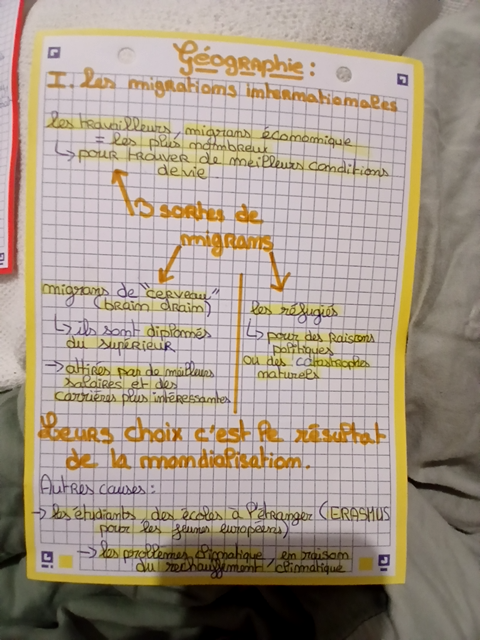 Géographie :
I. les migrations internationales
les travailleurs, migrans économique
= les plus nombreux
↳ pour trouver de meilleurs conditions
de vie
3 sortes de
migrans
migrans de "cerveau"
(brain drain)
↳ ils sont diplomés
du supérieur
→ attirés par de meilleurs
salaires et des
carrières plus intéressantes
les réfugiés
↳ pour des raisons
politiques
ou des catastrophes
naturels
Leurs choix c'est le résultat
de la mondialisation.
Autres causes :
→ les étudiants des écoles à l'étranger (ERASMUS
pour les jeunes européens)
→ les problèmes climatique, en raison
du rechauffement climatique